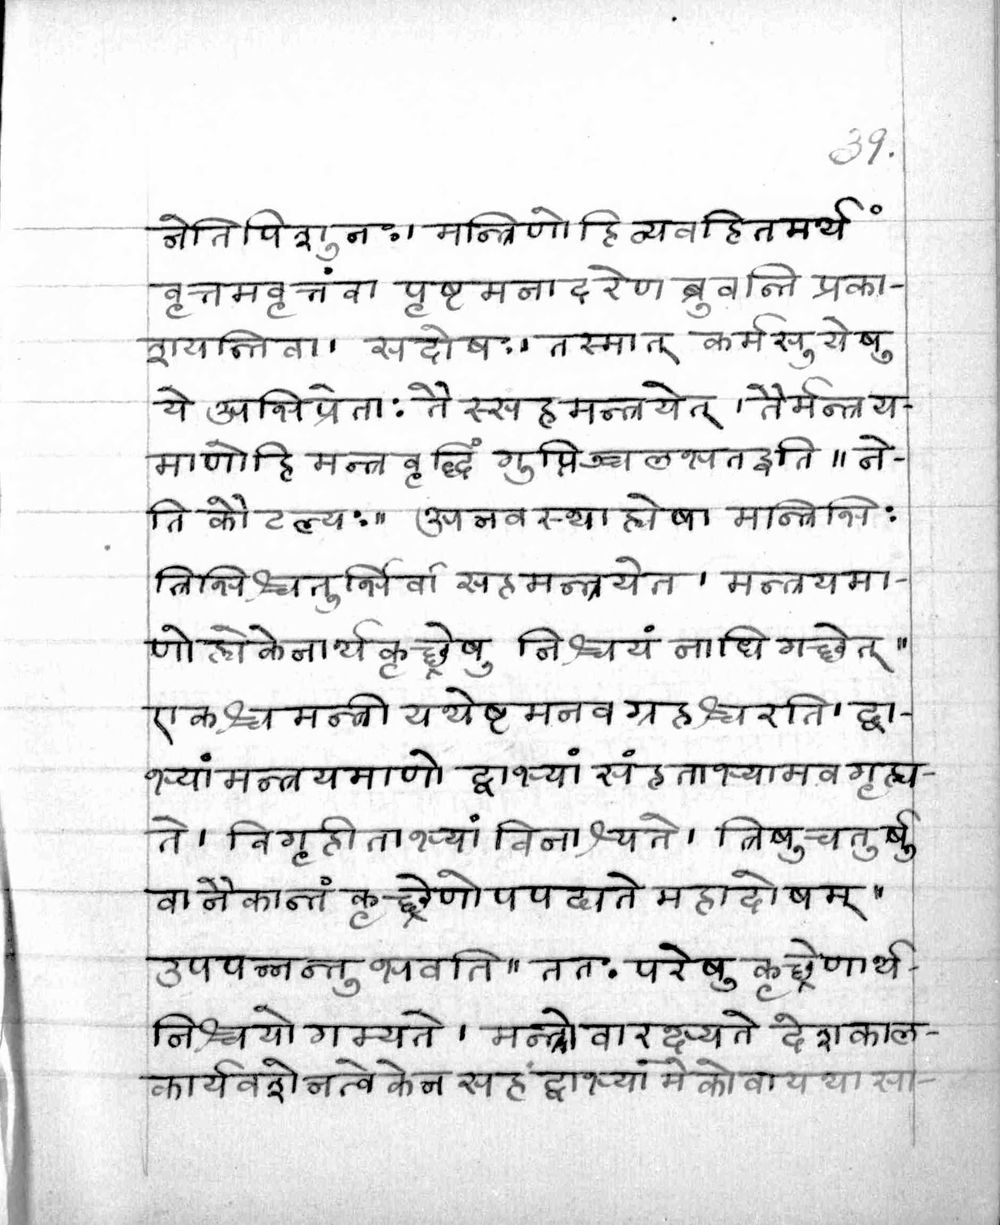 39.
नेतिपिशुनः। मन्त्रिणोहिव्यवहितमर्थं
वृत्तमवृत्तंवा पृष्टमनादरेण ब्रुवन्ति प्रका-
शयन्तिवा। सदोषः। तस्मात् कर्मसुयेषु
ये अभिप्रेताः तैस्सहमन्त्रयेत्। तैर्मन्त्रय-
माणोहि मन्त्रवृद्धिं गुप्तिञ्चलभतइति॥ ने-
ति कौटल्यः॥ अनवस्थाह्येषा मन्त्रिभिः
त्रिभिश्चतुर्भिर्वा सहमन्त्रयेत। मन्त्रयमा-
णोह्येकेनार्थकृच्छ्रेषु निश्चयं नाधिगच्छेत्॥
एकश्चमन्त्री यथेष्टमनवग्रहश्चरति। द्वा-
भ्यांमन्त्रयमाणो द्वाभ्यां संहताभ्यामवगृह्य-
ते। विगृहीताभ्यां विनाश्यते। त्रिषुचतुर्षु
वानैकान्तं कृच्छ्रेणोपपद्यते महादोषम्॥
उपपन्नन्तु भवति॥ ततः परेषु कृच्छ्रेणार्थ-
निश्चयोगम्यते। मन्त्रोवारक्ष्यते देशकाल-
कार्यवशेनत्वेकेन सह द्वाभ्यांमेकोवायथासा-